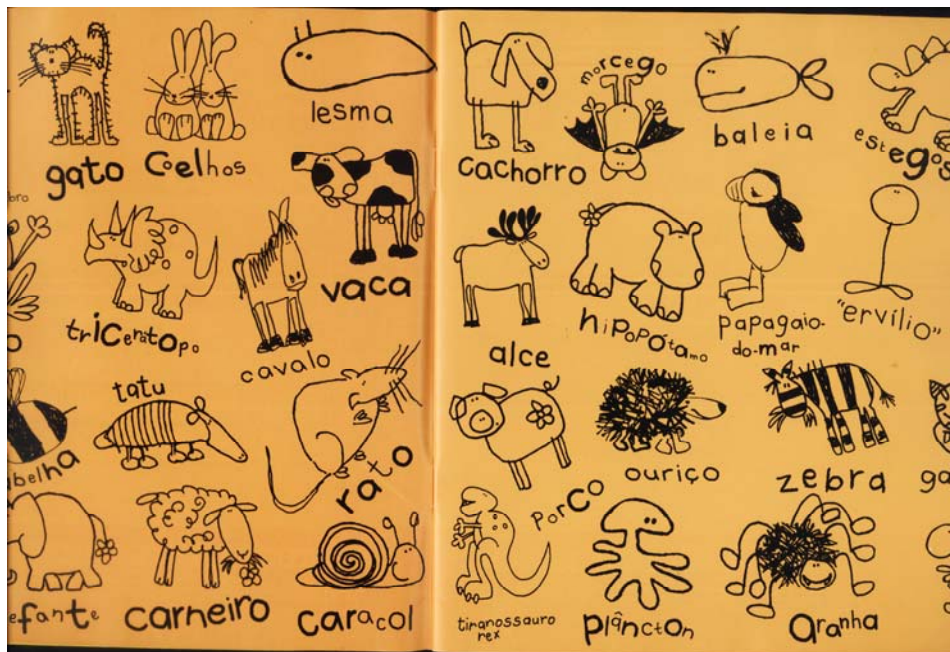 gato
coelhos
lesma
bro
vaca
tricerátopo
cavalo
o
tatu
abelha
rato
efante
carneiro
caracol
cachorro
morcego
baleia
estegos
alce
hipopótamo
papagaio-
do-mar
"ervílio"
porco
ouriço
zebra
ga
tiranossauro
rex
plâncton
aranha